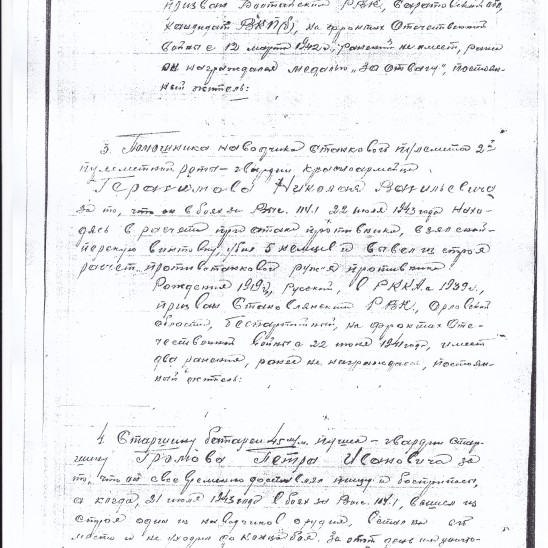 призван Воотанский РВК, Саратовской обл,
кандидат ВКП(б), на фронтах Отечественной
войны с 12 марта 1942 г, ранений не имеет, ранее
он награждался медалью „За Отвагу", постоян-
ный житель:
3. Помошника наводчика станкового пулемета 2й
пулеметной роты – гвардии красноармейца
Герасимова Николая Васильевича
за то, что он в боях за Выс. 114.1 22 июля 1943 года нахо-
дясь в расчете при атаке противника, взял снай-
перскую винтовку, убил 5 немцев и вывел из строя
расчет противотанковой ружья противника
Рождения 1919 г, Русский, в РККА с 1939 г.,
призван Становлянский РВК, Орловской
области, беспартийный, на фронтах Оте-
чественной войны с 22 июня 1941 года, имеет
два ранения, ранее не награждался, постоян-
ный житель:
4. Старшину батареи 45 м/м. пушек – гвардии стар-
шину Громова Петра Ивановича за
то, что он своевременно доставлял пищу и боеприпасы,
а когда, 21 июля 1943 года в боях за Выс. 114.1, вышел из
строя один из наводчиков орудия, встал на его
место и не уходил до конца боя. За этот день им уничто-